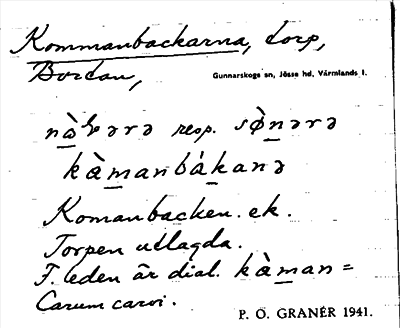 Kommanbackarna, torp,
Bortan,
Gunnarskogs sn, Jösse hd, Värmlands l.
nà̱ꝛərə resp. sø̀ṉərə
kàm̱anbáḵanə
Komanbacken. ek.
Torpen utlagda.
F. leden är dial. kàm̱an =
Carum carvi.
P. O. GRANÉR 1941.